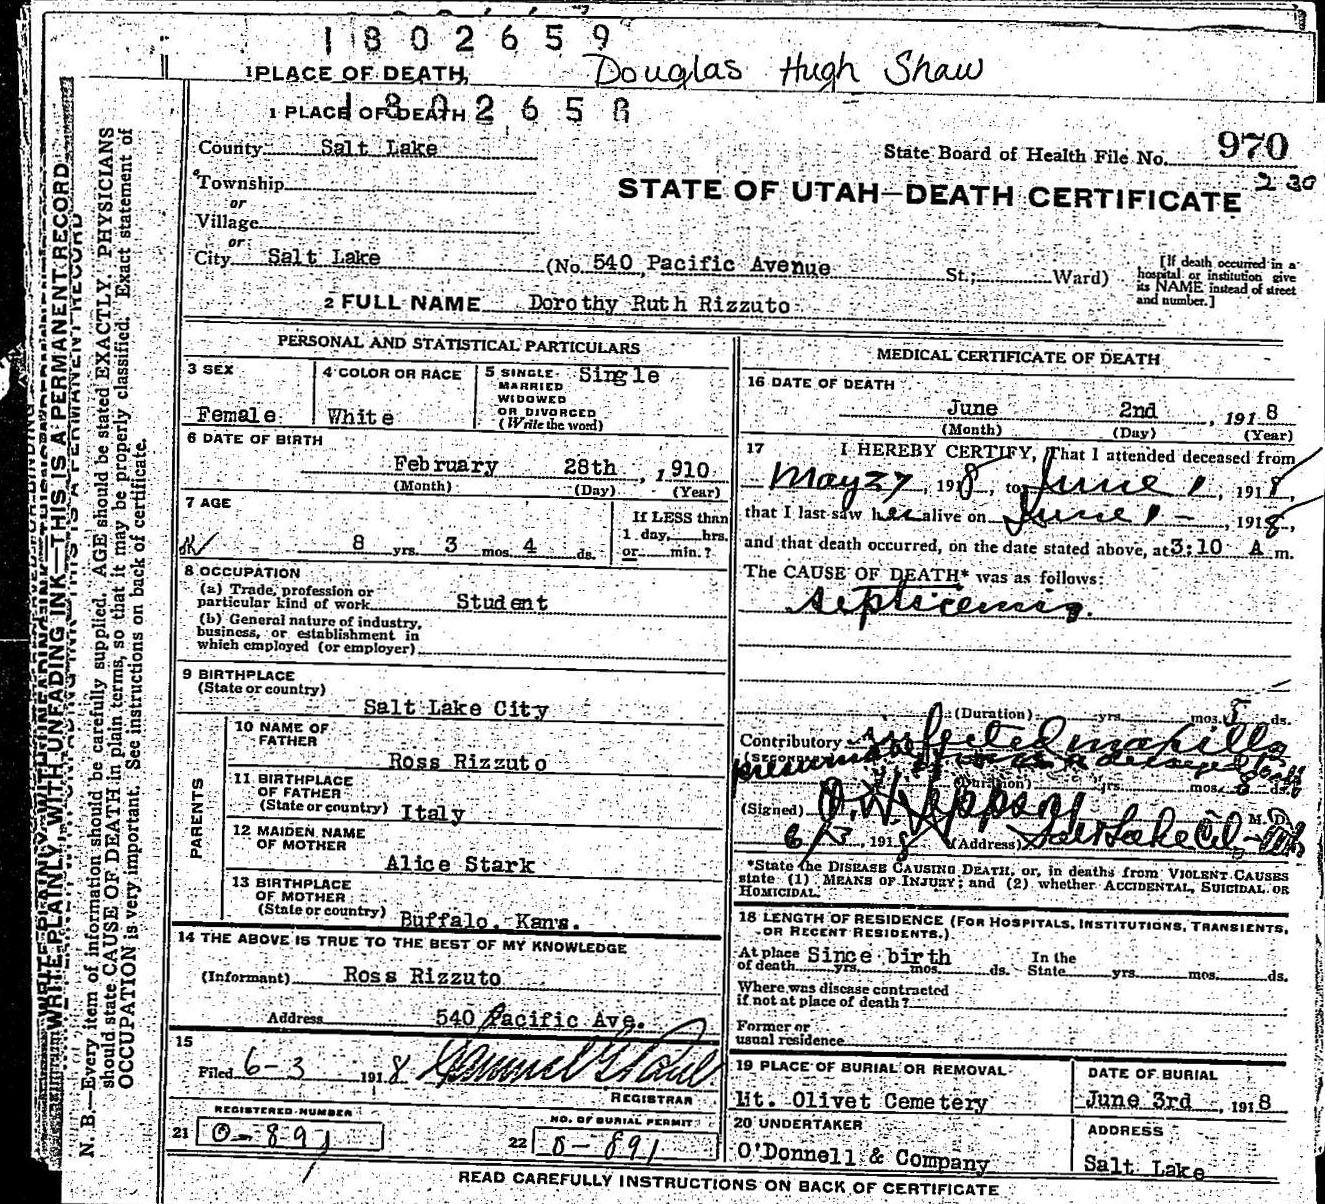 1802659
1 PLACE OF DEATH, Douglas Hugh Shaw
1 PLACE OF DEATH 180265
County Salt Lake
State Board of Health File No. 970
Township
or
Village
or
STATE OF UTAH—DEATH CERTIFICATE
2 30
City Salt Lake (No. 540 Pacific Avenue St.; Ward)
[If death occurred in a
hospital or institution give
its NAME instead of street
and number.]
2 FULL NAME Dorothy Ruth Rizzuto
PERSONAL AND STATISTICAL PARTICULARS
3 SEX
Female
4 COLOR OR RACE
White
5 SINGLE Single
MARRIED
WIDOWED
OR DIVORCED
(Write the word)
6 DATE OF BIRTH
February 28th, 1910
(Month) (Day) (Year)
7 AGE
8 yrs. 3 mos. 4 ds.
If LESS than
1 day, hrs.
or min.?
8 OCCUPATION
(a) Trade, profession or
particular kind of work Student
(b) General nature of industry,
business, or establishment in
which employed (or employer)
9 BIRTHPLACE
(State or country)
Salt Lake City
PARENTS
10 NAME OF
FATHER
Ross Rizzuto
11 BIRTHPLACE
OF FATHER
(State or country) Italy
12 MAIDEN NAME
OF MOTHER
Alice Stark
13 BIRTHPLACE
OF MOTHER
(State or country) Buffalo, Kans.
14 THE ABOVE IS TRUE TO THE BEST OF MY KNOWLEDGE
(Informant) Ross Rizzuto
Address 540 Pacific Ave.
15
Filed 6-3 1918
REGISTRAR
REGISTERED NUMBER
21 0-891
NO. OF BURIAL PERMIT
22 0-891
MEDICAL CERTIFICATE OF DEATH
16 DATE OF DEATH
June 2nd, 1918
(Month) (Day) (Year)
17 I HEREBY CERTIFY, That I attended deceased from
May 27, 1918, to June 1, 1918,
that I last saw her alive on June 1 -, 1918,
and that death occurred, on the date stated above, at 3:10 A m.
The CAUSE OF DEATH* was as follows:
Septicemia.
(Duration) yrs. mos. 5 ds.
Contributory infected maxilla
(Duration) yrs. mos. 8 ds.
(Signed) M. D.
6/3, 1918 (Address) Salt Lake
*State the DISEASE CAUSING DEATH, or, in deaths from VIOLENT CAUSES
state (1) MEANS OF INJURY; and (2) whether ACCIDENTAL, SUICIDAL OR
HOMICIDAL.
18 LENGTH OF RESIDENCE (FOR HOSPITALS, INSTITUTIONS, TRANSIENTS,
OR RECENT RESIDENTS.)
At place Since birth In the
of death yrs. mos. ds. State yrs. mos. ds.
Where was disease contracted
if not at place of death?
Former or
usual residence
19 PLACE OF BURIAL OR REMOVAL
Mt. Olivet Cemetery
DATE OF BURIAL
June 3rd, 1918
20 UNDERTAKER
O'Donnell & Company
ADDRESS
Salt Lake
READ CAREFULLY INSTRUCTIONS ON BACK OF CERTIFICATE
WRITE PLANLY, WITH UNFADING INK—THIS IS A PERMANENT RECORD
N. B.—Every item of information should be carefully supplied. AGE should be stated EXACTLY. PHYSICIANS
should state CAUSE OF DEATH in plain terms, so that it may be properly classified. Exact statement of
OCCUPATION is very important. See instructions on back of certificate.